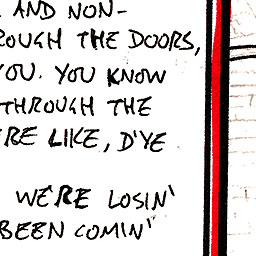 AND NON-
ROUGH THE DOORS,
YOU. YOU KNOW
THROUGH THE
'RE LIKE, D'YE
WE'RE LOSIN'
BEEN COMIN'